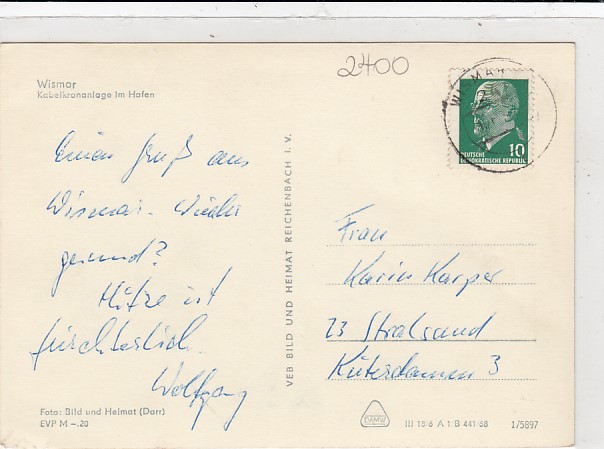 2400
Wismar
Kabelkrananlage im Hafen
WISMAR
10
DEUTSCHE
DEMOKRATISCHE REPUBLIK
Einen Gruß aus
Wismar. Wieder
gesund?
Hitze ist
fürchterlich.
Wolfgang
VEB BILD UND HEIMAT REICHENBACH I. V.
Frau
Karin Karper
23 Stralsund
Küterdamm 3
Foto: Bild und Heimat (Darr)
EVP M –.20
DAMW
III 18/6 A 1/B 441/68 1/5897